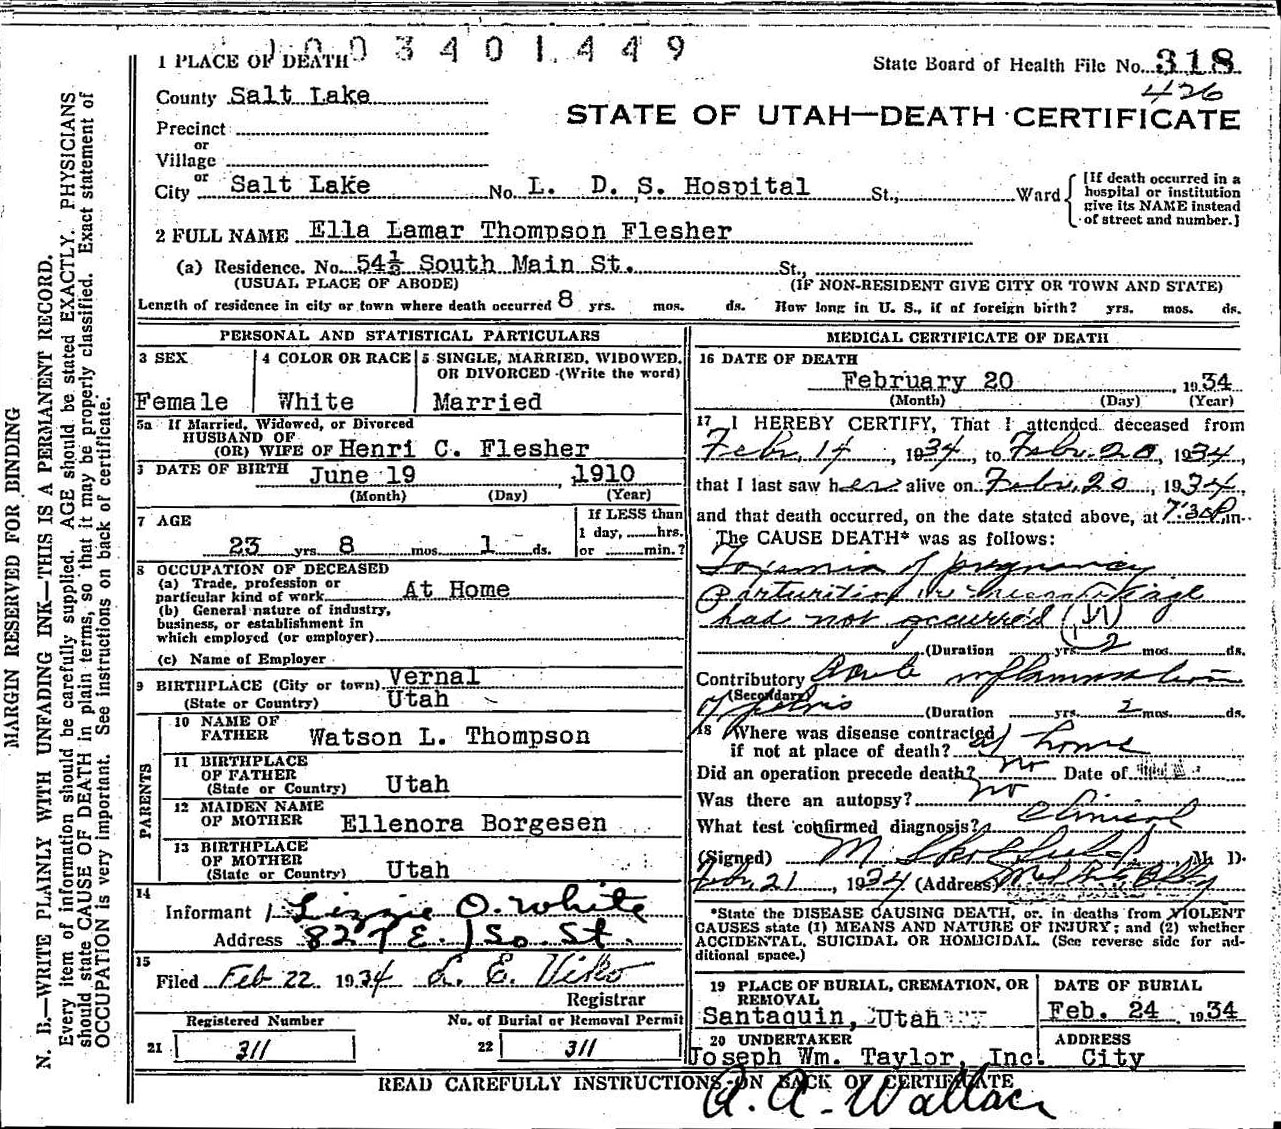 1003401449
1 PLACE OF DEATH
State Board of Health File No. 318
426
County Salt Lake
STATE OF UTAH—DEATH CERTIFICATE
Precinct
or
Village
or
City Salt Lake No. L. D. S. Hospital St., Ward
[If death occurred in a hospital or institution give its NAME instead of street and number.]
2 FULL NAME Ella Lamar Thompson Flesher
(a) Residence. No. 54½ South Main St. St.,
(USUAL PLACE OF ABODE) (IF NON-RESIDENT GIVE CITY OR TOWN AND STATE)
Length of residence in city or town where death occurred 8 yrs. mos. ds. How long in U. S., if of foreign birth? yrs. mos. ds.
PERSONAL AND STATISTICAL PARTICULARS
3 SEX
Female
4 COLOR OR RACE
White
5 SINGLE, MARRIED, WIDOWED,
OR DIVORCED (Write the word)
Married
5a If Married, Widowed, or Divorced
HUSBAND OF
(OR) WIFE OF Henri C. Flesher
DATE OF BIRTH June 19, 1910
(Month) (Day) (Year)
7 AGE
23 yrs. 8 mos. 1 ds.
If LESS than
1 day, hrs.
or min.?
8 OCCUPATION OF DECEASED
(a) Trade, profession or
particular kind of work At Home
(b) General nature of industry,
business, or establishment in
which employed (or employer)
(c) Name of Employer
9 BIRTHPLACE (City or town) Vernal
(State or Country) Utah
PARENTS
10 NAME OF
FATHER Watson L. Thompson
11 BIRTHPLACE
OF FATHER
(State or Country) Utah
12 MAIDEN NAME
OF MOTHER Ellenora Borgesen
13 BIRTHPLACE
OF MOTHER
(State or Country) Utah
14
Informant Lizzie O. White
Address 827 E. 1 So. St.
15
Filed Feb 22 1934 L. E. Viko
Registrar
Registered Number
21 311
No. of Burial or Removal Permit
22 311
MEDICAL CERTIFICATE OF DEATH
16 DATE OF DEATH
February 20 1934
(Month) (Day) (Year)
17 I HEREBY CERTIFY, That I attended deceased from
Febr. 14, 1934, to Febr. 20, 1934,
that I last saw her alive on Febr. 20, 1934,
and that death occurred, on the date stated above, at 7:30P m.
The CAUSE DEATH* was as follows:
Toxemia of pregnancy
Parturition or miscarriage
had not occurred
(Duration yrs. 2 mos. ds.
Contributory Acute inflammation
(Secondary)
of pelvis (Duration yrs. 2 mos. ds.
18 Where was disease contracted
if not at place of death? at home
Did an operation precede death? no Date of
Was there an autopsy? no
What test confirmed diagnosis? Clinical
(Signed) M. M. D.
Febr. 21, 1934 (Address)
*State the DISEASE CAUSING DEATH, or, in deaths from VIOLENT
CAUSES state (1) MEANS AND NATURE OF INJURY; and (2) whether
ACCIDENTAL, SUICIDAL OR HOMICIDAL. (See reverse side for ad-
ditional space.)
19 PLACE OF BURIAL, CREMATION, OR
REMOVAL
Santaquin, Utah
DATE OF BURIAL
Feb. 24 1934
20 UNDERTAKER
Joseph Wm. Taylor, Inc.
ADDRESS
City
READ CAREFULLY INSTRUCTIONS ON BACK OF CERTIFICATE
A. A. Wallace
MARGIN RESERVED FOR BINDING
N. B.—WRITE PLAINLY WITH UNFADING INK—THIS IS A PERMANENT RECORD.
Every item of information should be carefully supplied. AGE should be stated EXACTLY. PHYSICIANS
should state CAUSE OF DEATH in plain terms, so that it may be properly classified. Exact statement of
OCCUPATION is very important. See instructions on back of certificate.